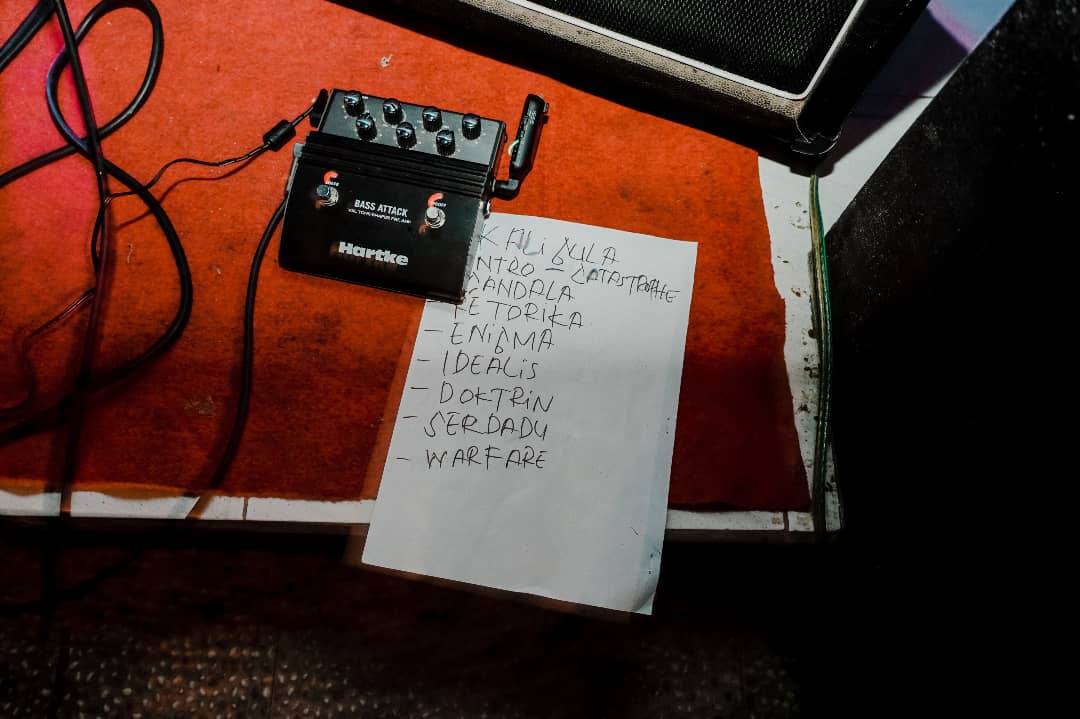 BASS ATTACK
VXL TONE SHAPER PRE-AMP
Hartke
KALIGULA
INTRO – CATASTROPHE
MANDALA
RETORIKA
– ENiGMA
– IDEALiS
– DOKTRiN
– SERDADU
– WARFARE